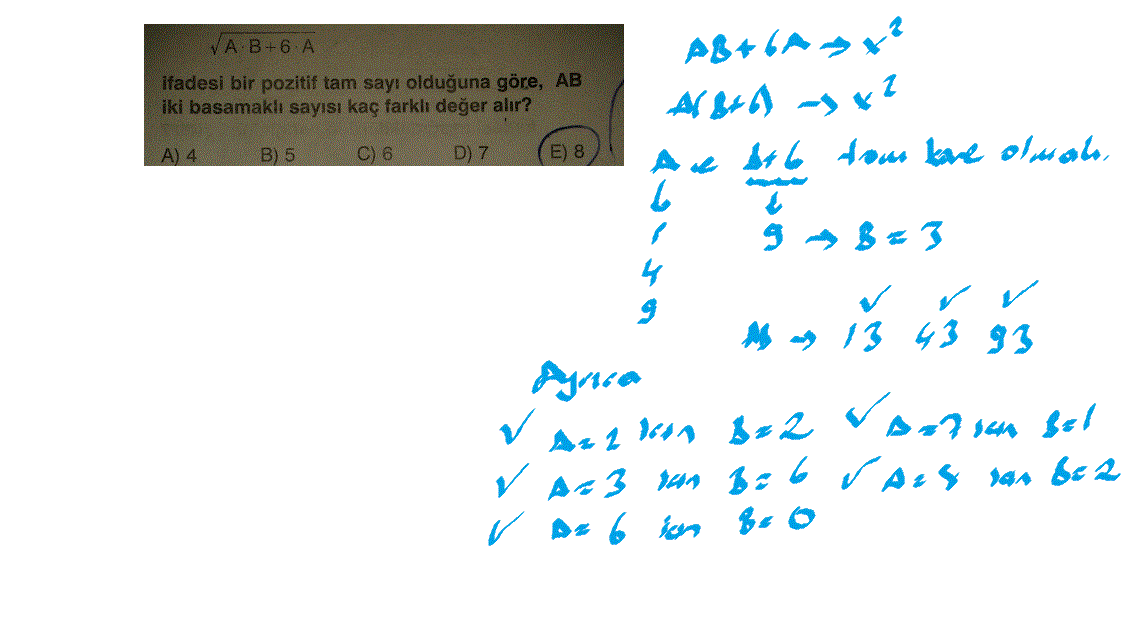 √A·B+6·A
ifadesi bir pozitif tam sayı olduğuna göre, AB
iki basamaklı sayısı kaç farklı değer alır?
A) 4 B) 5 C) 6 D) 7 E) 8
AB + 6A → x²
A(B+6) → x²
A ve B+6 tam kare olmalı.
↓ ↓
1 9 → B = 3
4
9
AB → 13 43 93
✓ ✓ ✓
Ayrıca
✓ A=2 için B=2 ✓ A=7 için B=1
✓ A=3 için B=6 ✓ A=8 için B=2
✓ A=6 için B=0